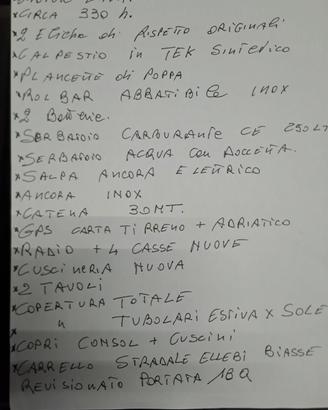 *CIRCA 330 h.
*2 Eliche di RISPETTO ORIGINALI
*CALPESTIO in TEK SINTETICO
*PLANCETTE di POPPA
*ROL BAR ABBATIBILE INOX
*2 Batterie.
*SERBATOIO CARBURANTE CE 250LT
*SERBATOIO ACQUA con DOCCETTA.
*SALPA ANCORA ELETTRICO
*ANCORA INOX
*CATENA 30MT.
*GPS CARTA TIRRENO + ADRIATICO
*RADIO + 4 CASSE NUOVE
*CUSCINERIA NUOVA
*2 TAVOLI
*COPERTURA TOTALE
" TUBOLARI ESTIVA X SOLE
*COPRI CONSOL + CUSCINI
*CARRELLO STRADALE ELLEBI BIASSE
REVISIONATO PORTATA 18Q